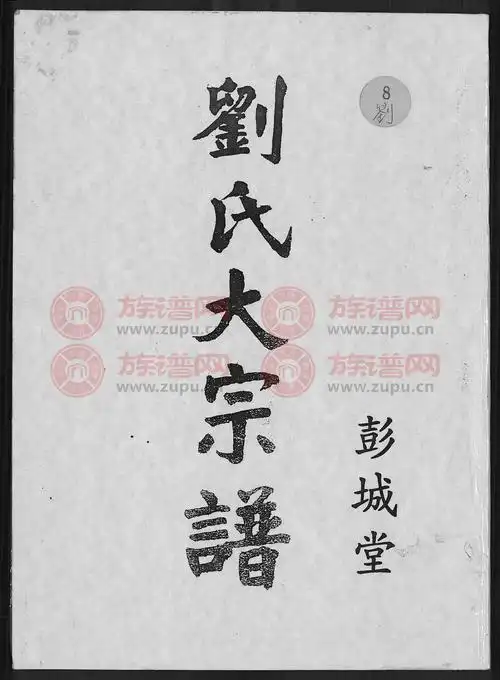 8
劉
劉氏大宗譜
彭城堂
族谱网 族谱网
www.zupu.cn www.zupu.cn
族谱网 族谱网
www.zupu.cn www.zupu.cn